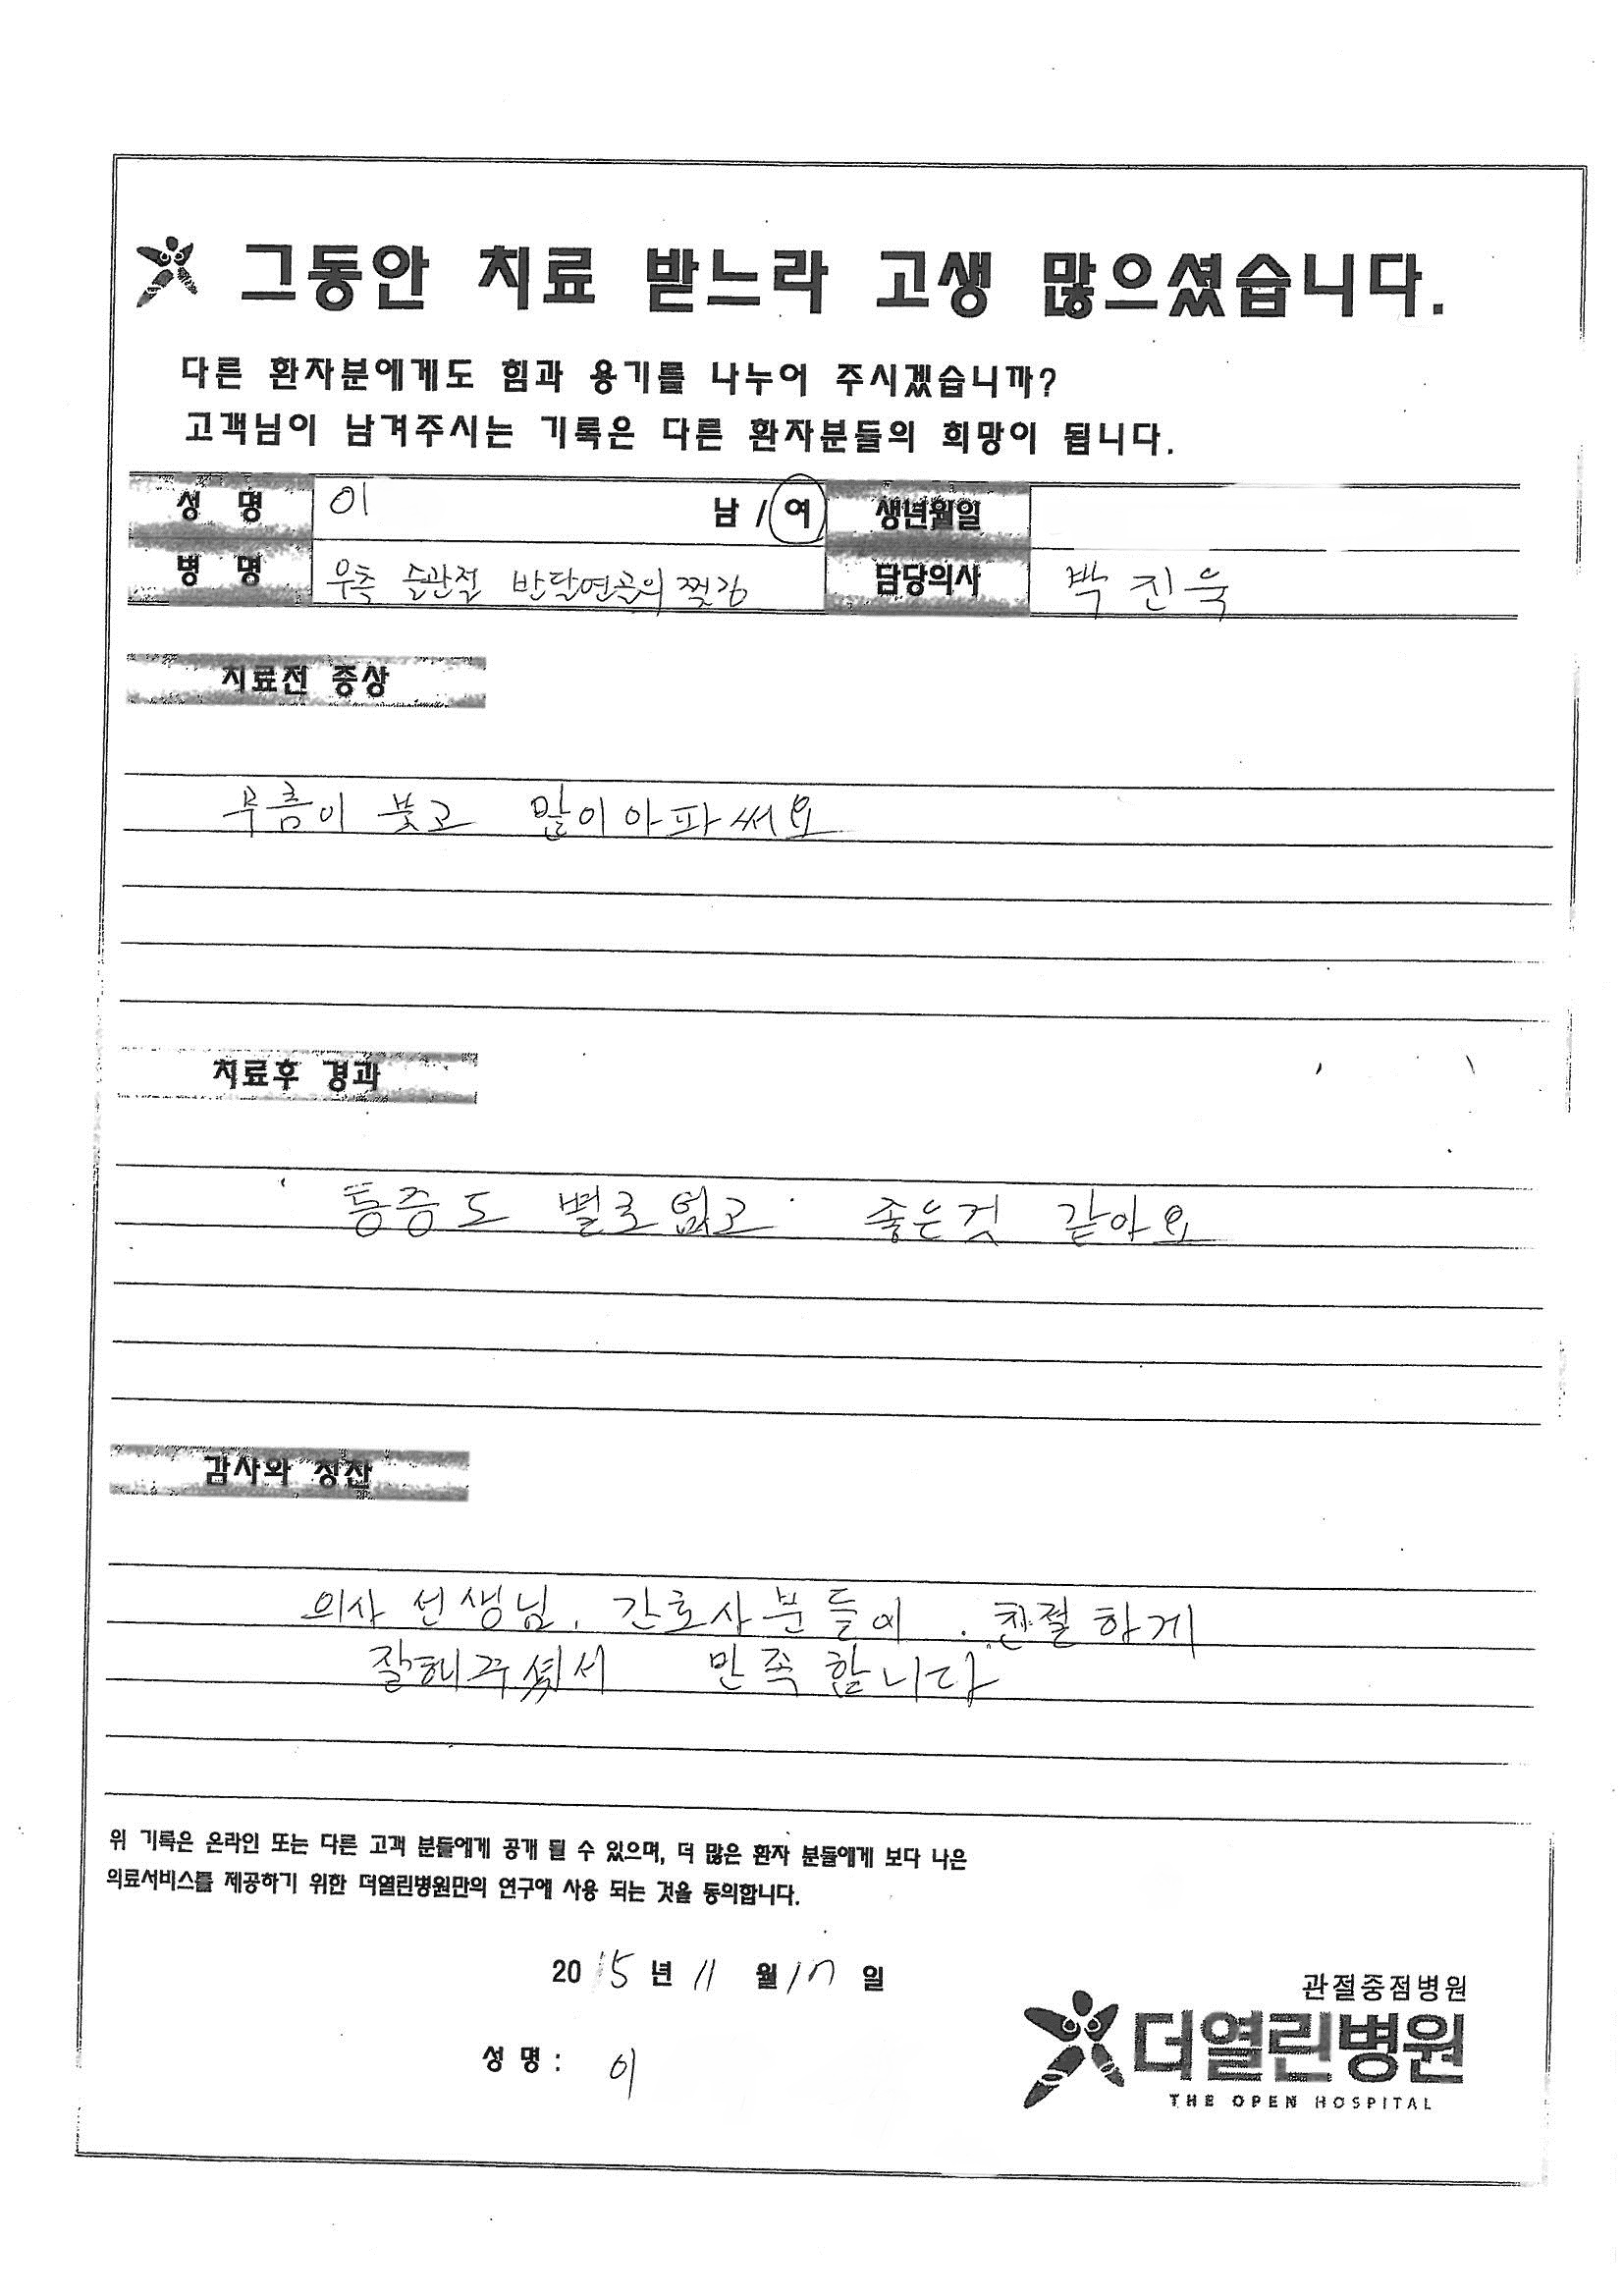 그동안 치료 받느라 고생 많으셨습니다.
다른 환자분에게도 힘과 용기를 나누어 주시겠습니까?
고객님이 남겨주시는 기록은 다른 환자분들의 희망이 됩니다.
성 명 이 남 / 여 생년월일
병 명 우측 슬관절 반달연골의 찢김 담당의사 박진욱
치료전 증상
무릎이 붓고 많이아파써요
치료후 경과
통증도 별로없고 좋은것 같아요
감사와 칭찬
의사 선생님, 간호사분들이 친절하게
잘해주셔서 만족합니다
위 기록은 온라인 또는 다른 고객 분들에게 공개 될 수 있으며, 더 많은 환자 분들에게 보다 나은
의료서비스를 제공하기 위한 더열린병원만의 연구에 사용 되는 것을 동의합니다.
2015년 11월 17일
성 명 : 이
관절중점병원
더열린병원
THE OPEN HOSPITAL